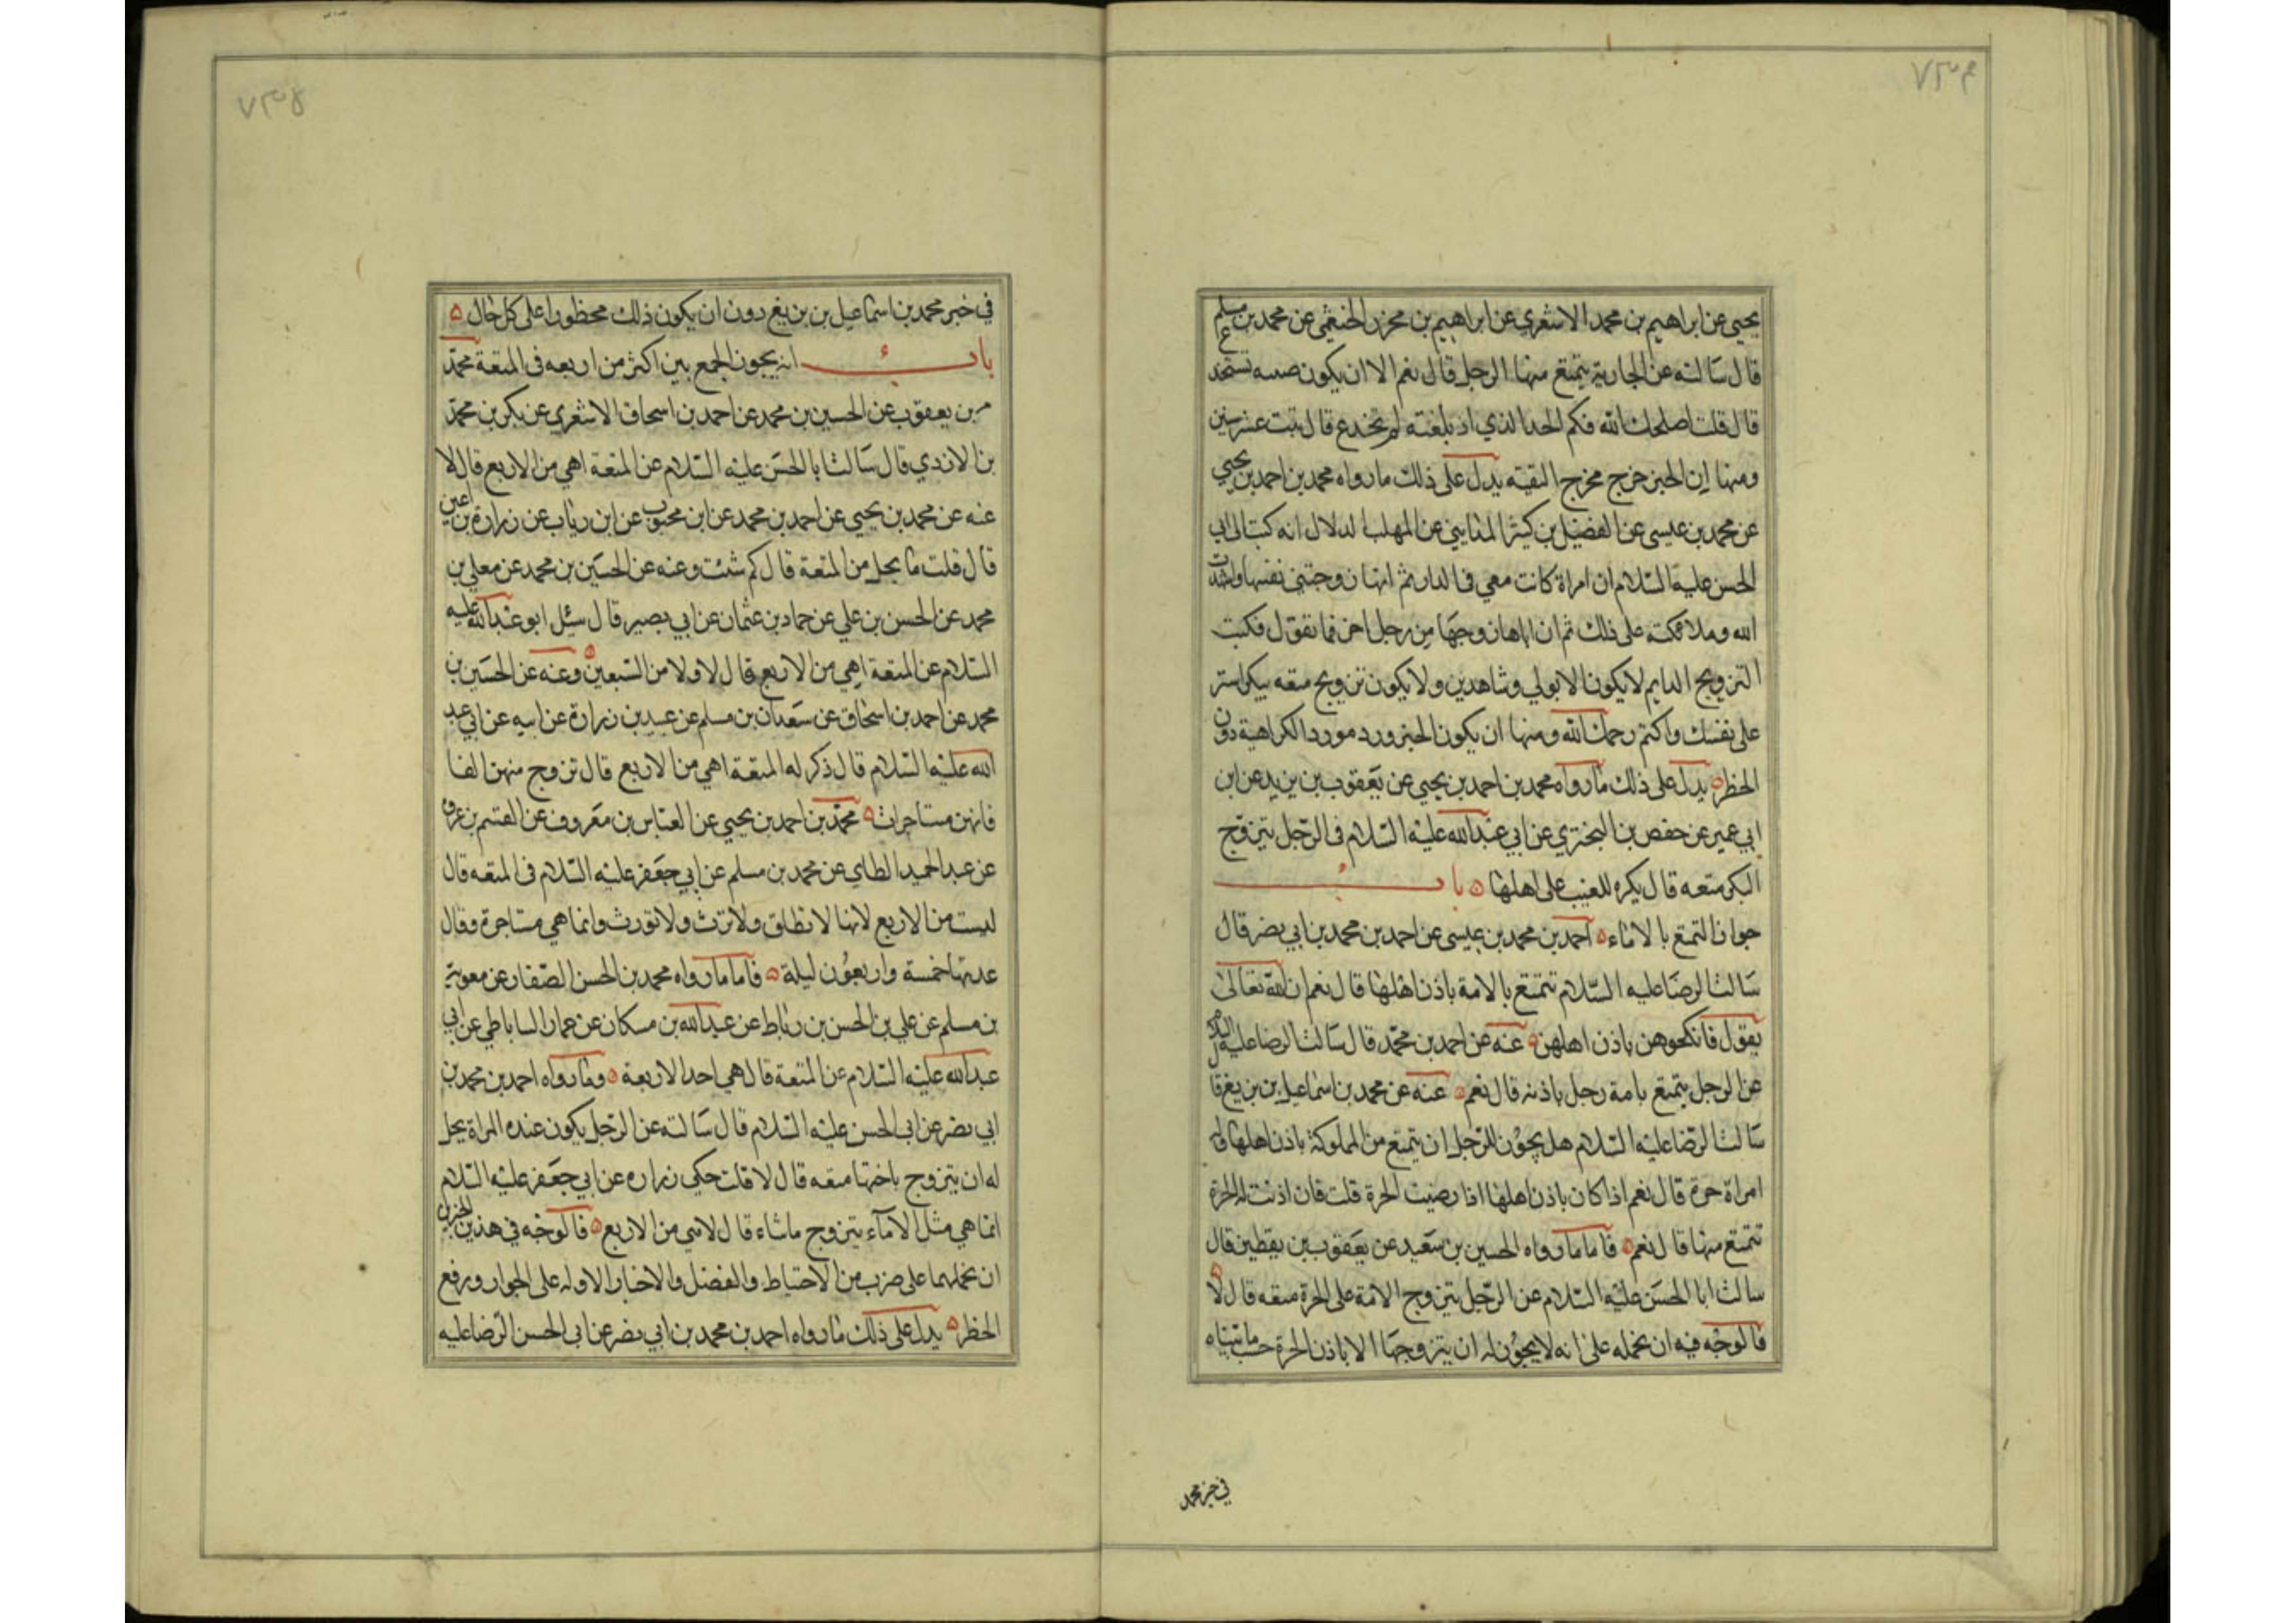 ٧٣٤
يحيى عن ابراهيم بن محمد الاشعري عن ابراهيم بن محرز الخثعمي عن محمد بن مسلم
قال سالته عن الجارية يتمتع منها الرجل قال نعم الا ان يكون صبيه تستخدع
قال قلت اصلحك الله فكم الحد الذي اذ بلغته لم تخدع قال بنت عشر سنين
ومنها ان الخبر خرج مخرج التقيه يدل على ذلك ما رواه محمد بن احمد بن يحيى
عن محمد بن عيسى عن الفضيل بن كثير المدايني عن المهلب الدلال انه كتب الى ابي
الحسن عليه السلام ان امراة كانت معي في الدار ثم انها زوجتني نفسها واشهدت
الله وملائكته على ذلك ثم ان اباها زوجها من رجل اخر فما تقول فكتب
التزويج الدايم لا يكون الا بولي وشاهدين ولا يكون تزويج متعه ببكر استر
على نفسك واكتم رحمك الله ومنها ان يكون الخبر ورد مورد الكراهية دون
الحظر ه يدل على ذلك ما رواه محمد بن احمد بن يحيى عن يعقوب بن يزيد عن ابن
ابي عمير عن حفص بن البختري عن ابي عبد الله عليه السلام في الرجل يتزوج
البكر متعه قال يكره للعيب على اهلها ه باب
جواز التمتع بالاماء ه احمد بن محمد بن عيسى عن احمد بن محمد بن ابي نصر قال
سالت الرضا عليه السلام تتمتع بالامة باذن اهلها قال نعم ان الله تعالى
يقول فانكحوهن باذن اهلهن ه عنه عن احمد بن محمد قال سالت الرضا عليه السلام
عن الرجل يتمتع بامة رجل باذنه قال نعم ه عنه عن محمد بن اسماعيل بن بزيغ قال
سالت الرضا عليه السلام هل يجوز للرجل ان يتمتع من المملوكة باذن اهلها وله
امراة حرة قال نعم اذا كان باذن اهلها اذا رضيت الحرة قلت فان اذنت له الحرة
تتمتع منها قال نعم ه فاما ما رواه الحسين بن سعيد عن يعقوب بن يقطين قال
سالت ابا الحسن عليه السلام عن الرجل يتزوج الامة على الحرة متعه قال لا ه
فالوجه فيه ان نحمله على انه لا يجوز له ان يتزوجها الا باذن الحرة حسب ما بيناه
في خبر محمد
٧٣٥
في خبر محمد بن اسماعيل بن بزيغ دون ان يكون ذلك محظورا على كل حال ه
باب انه يجوز الجمع بين اكثر من اربعه في المتعة محمد
بن يعقوب عن الحسين بن محمد عن احمد بن اسحاق الاشعري عن بكر بن محمد
بن الازدي قال سالت ابا الحسن عليه السلام عن المتعة اهي من الاربع قال لا
عنه عن محمد بن يحيى عن احمد بن محمد عن ابن محبوب عن ابن رياب عن زرارة بن اعين
قال قلت ما يحل من المتعة قال كم شئت وعنه عن الحسين بن محمد عن معلى بن
محمد عن الحسن بن علي عن حماد بن عثمان عن ابي بصير قال سئل ابو عبد الله عليه
السلام عن المتعة اهي من الاربع قال لا ولا من السبعين ه وعنه عن الحسين بن
محمد عن احمد بن اسحاق عن سعدان بن مسلم عن عبيد بن زرارة عن ابيه عن ابي عبد
الله عليه السلام قال ذكر له المتعة اهي من الاربع قال تزوج منهن الفا
فانهن مستاجرات ه محمد بن احمد بن يحيى عن العباس بن معروف عن القسم بن عروه
عن عبد الحميد الطاي عن محمد بن مسلم عن ابي جعفر عليه السلام في المتعه قال
ليست من الاربع لانها لا تطلق ولا ترث ولا تورث وانما هي مستاجرة وقال
عدتها خمسة واربعون ليلة ه فاما ما رواه محمد بن الحسن الصفار عن معوية
بن مسلم عن علي بن الحسن بن رباط عن عبد الله بن مسكان عن عمار الساباطي عن ابي
عبد الله عليه السلام عن المتعة قال هي احد الاربعة ه وما رواه احمد بن محمد بن
ابي نصر عن ابي الحسن عليه السلام قال سالته عن الرجل يكون عنده المراة يحل
له ان يتزوج باختها متعه قال لا قلت حكي زراره عن ابي جعفر عليه السلام
انما هي مثل الاماء يتزوج ما شاء قال لا هي من الاربع ه فالوجه في هذين الخبرين
ان نحملهما على ضرب من الاحتياط والفضل والاخبار الاوله على الجواز ورفع
الحظر ه يدل على ذلك ما رواه احمد بن محمد بن ابي نصر عن ابي الحسن الرضا عليه